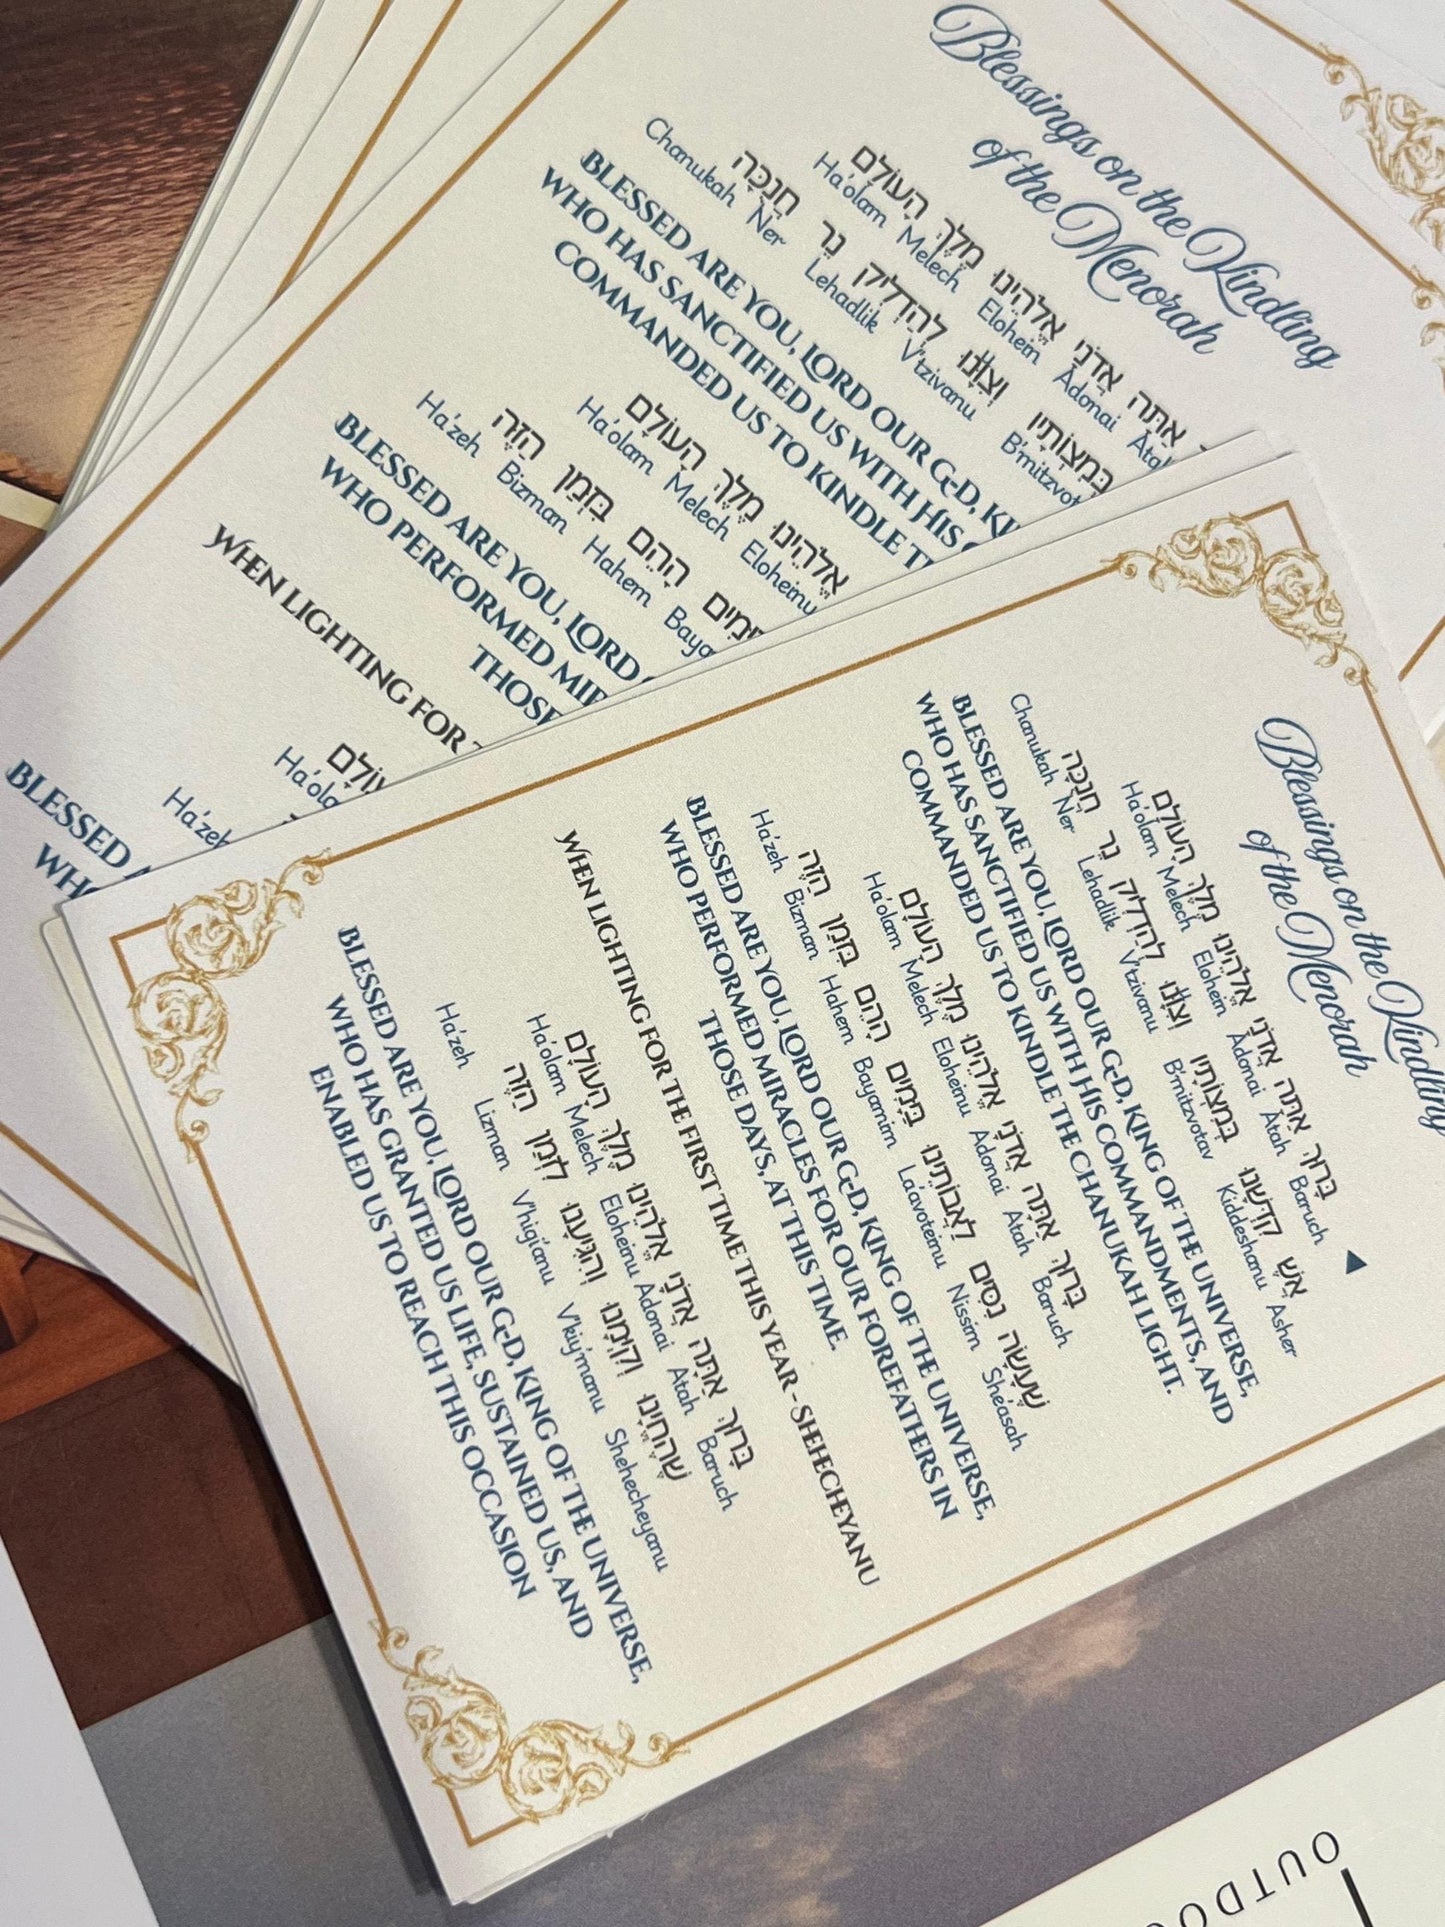 Blessings on the Kindling
of the Menorah
בָּרוּךְ אַתָּה אֲדֹנָי אֱלֹהֵינוּ מֶלֶךְ הָעוֹלָם
Ha'olam Melech Elohein Adonai Atah Baruch
קִדְּשָׁנוּ בְּמִצְוֹתָיו וְצִוָּנוּ לְהַדְלִיק נֵר חֲנֻכָּה
Chanukah Ner Lehadlik V'tzivanu B'mitzvotav Kiddeshanu Asher
BLESSED ARE YOU, LORD OUR G-D, KING OF THE UNIVERSE,
WHO HAS SANCTIFIED US WITH HIS COMMANDMENTS, AND
COMMANDED US TO KINDLE THE CHANUKAH LIGHT.
בָּרוּךְ אַתָּה אֲדֹנָי אֱלֹהֵינוּ מֶלֶךְ הָעוֹלָם
Ha'olam Melech Eloheinu Adonai Atah Baruch
שֶׁעָשָׂה נִסִּים לַאֲבוֹתֵינוּ בַּיָּמִים הָהֵם בַּזְּמַן הַזֶּה
Ha'zeh Bizman Hahem Bayamim La'avoteinu Nissim She'asah
BLESSED ARE YOU, LORD OUR G-D, KING OF THE UNIVERSE,
WHO PERFORMED MIRACLES FOR OUR FOREFATHERS IN
THOSE DAYS, AT THIS TIME.
WHEN LIGHTING FOR THE FIRST TIME THIS YEAR - SHEHECHEYANU
בָּרוּךְ אַתָּה אֲדֹנָי אֱלֹהֵינוּ מֶלֶךְ הָעוֹלָם
Ha'olam Melech Eloheinu Adonai Atah Baruch
שֶׁהֶחֱיָנוּ וְקִיְּמָנוּ וְהִגִּיעָנוּ לִזְמַן הַזֶּה
Ha'zeh Lizman V'higi'anu V'kiy'manu Shehecheyanu
BLESSED ARE YOU, LORD OUR G-D, KING OF THE UNIVERSE,
WHO HAS GRANTED US LIFE, SUSTAINED US, AND
ENABLED US TO REACH THIS OCCASION
Blessings on the Kindling
of the Menorah
אַתָּה אֲדֹנָי אֱלֹהֵינוּ מֶלֶךְ הָעוֹלָם
Ha'olam Melech Elohein Adonai
בְּמִצְוֹתָיו וְצִוָּנוּ לְהַדְלִיק נֵר חֲנֻכָּה
Chanukah Ner Lehadlik V'tzivanu
BLESSED ARE YOU, LORD OUR G-D,
WHO HAS SANCTIFIED US WITH HIS
COMMANDED US TO KINDLE
אֱלֹהֵינוּ מֶלֶךְ הָעוֹלָם
Ha'olam Melech Eloheinu
הָהֵם בַּזְּמַן הַזֶּה
Ha'zeh Bizman Hahem
BLESSED ARE YOU, LORD
WHO PERFORMED
THOSE
WHEN LIGHTING FOR
Ha'zeh
BLESSED